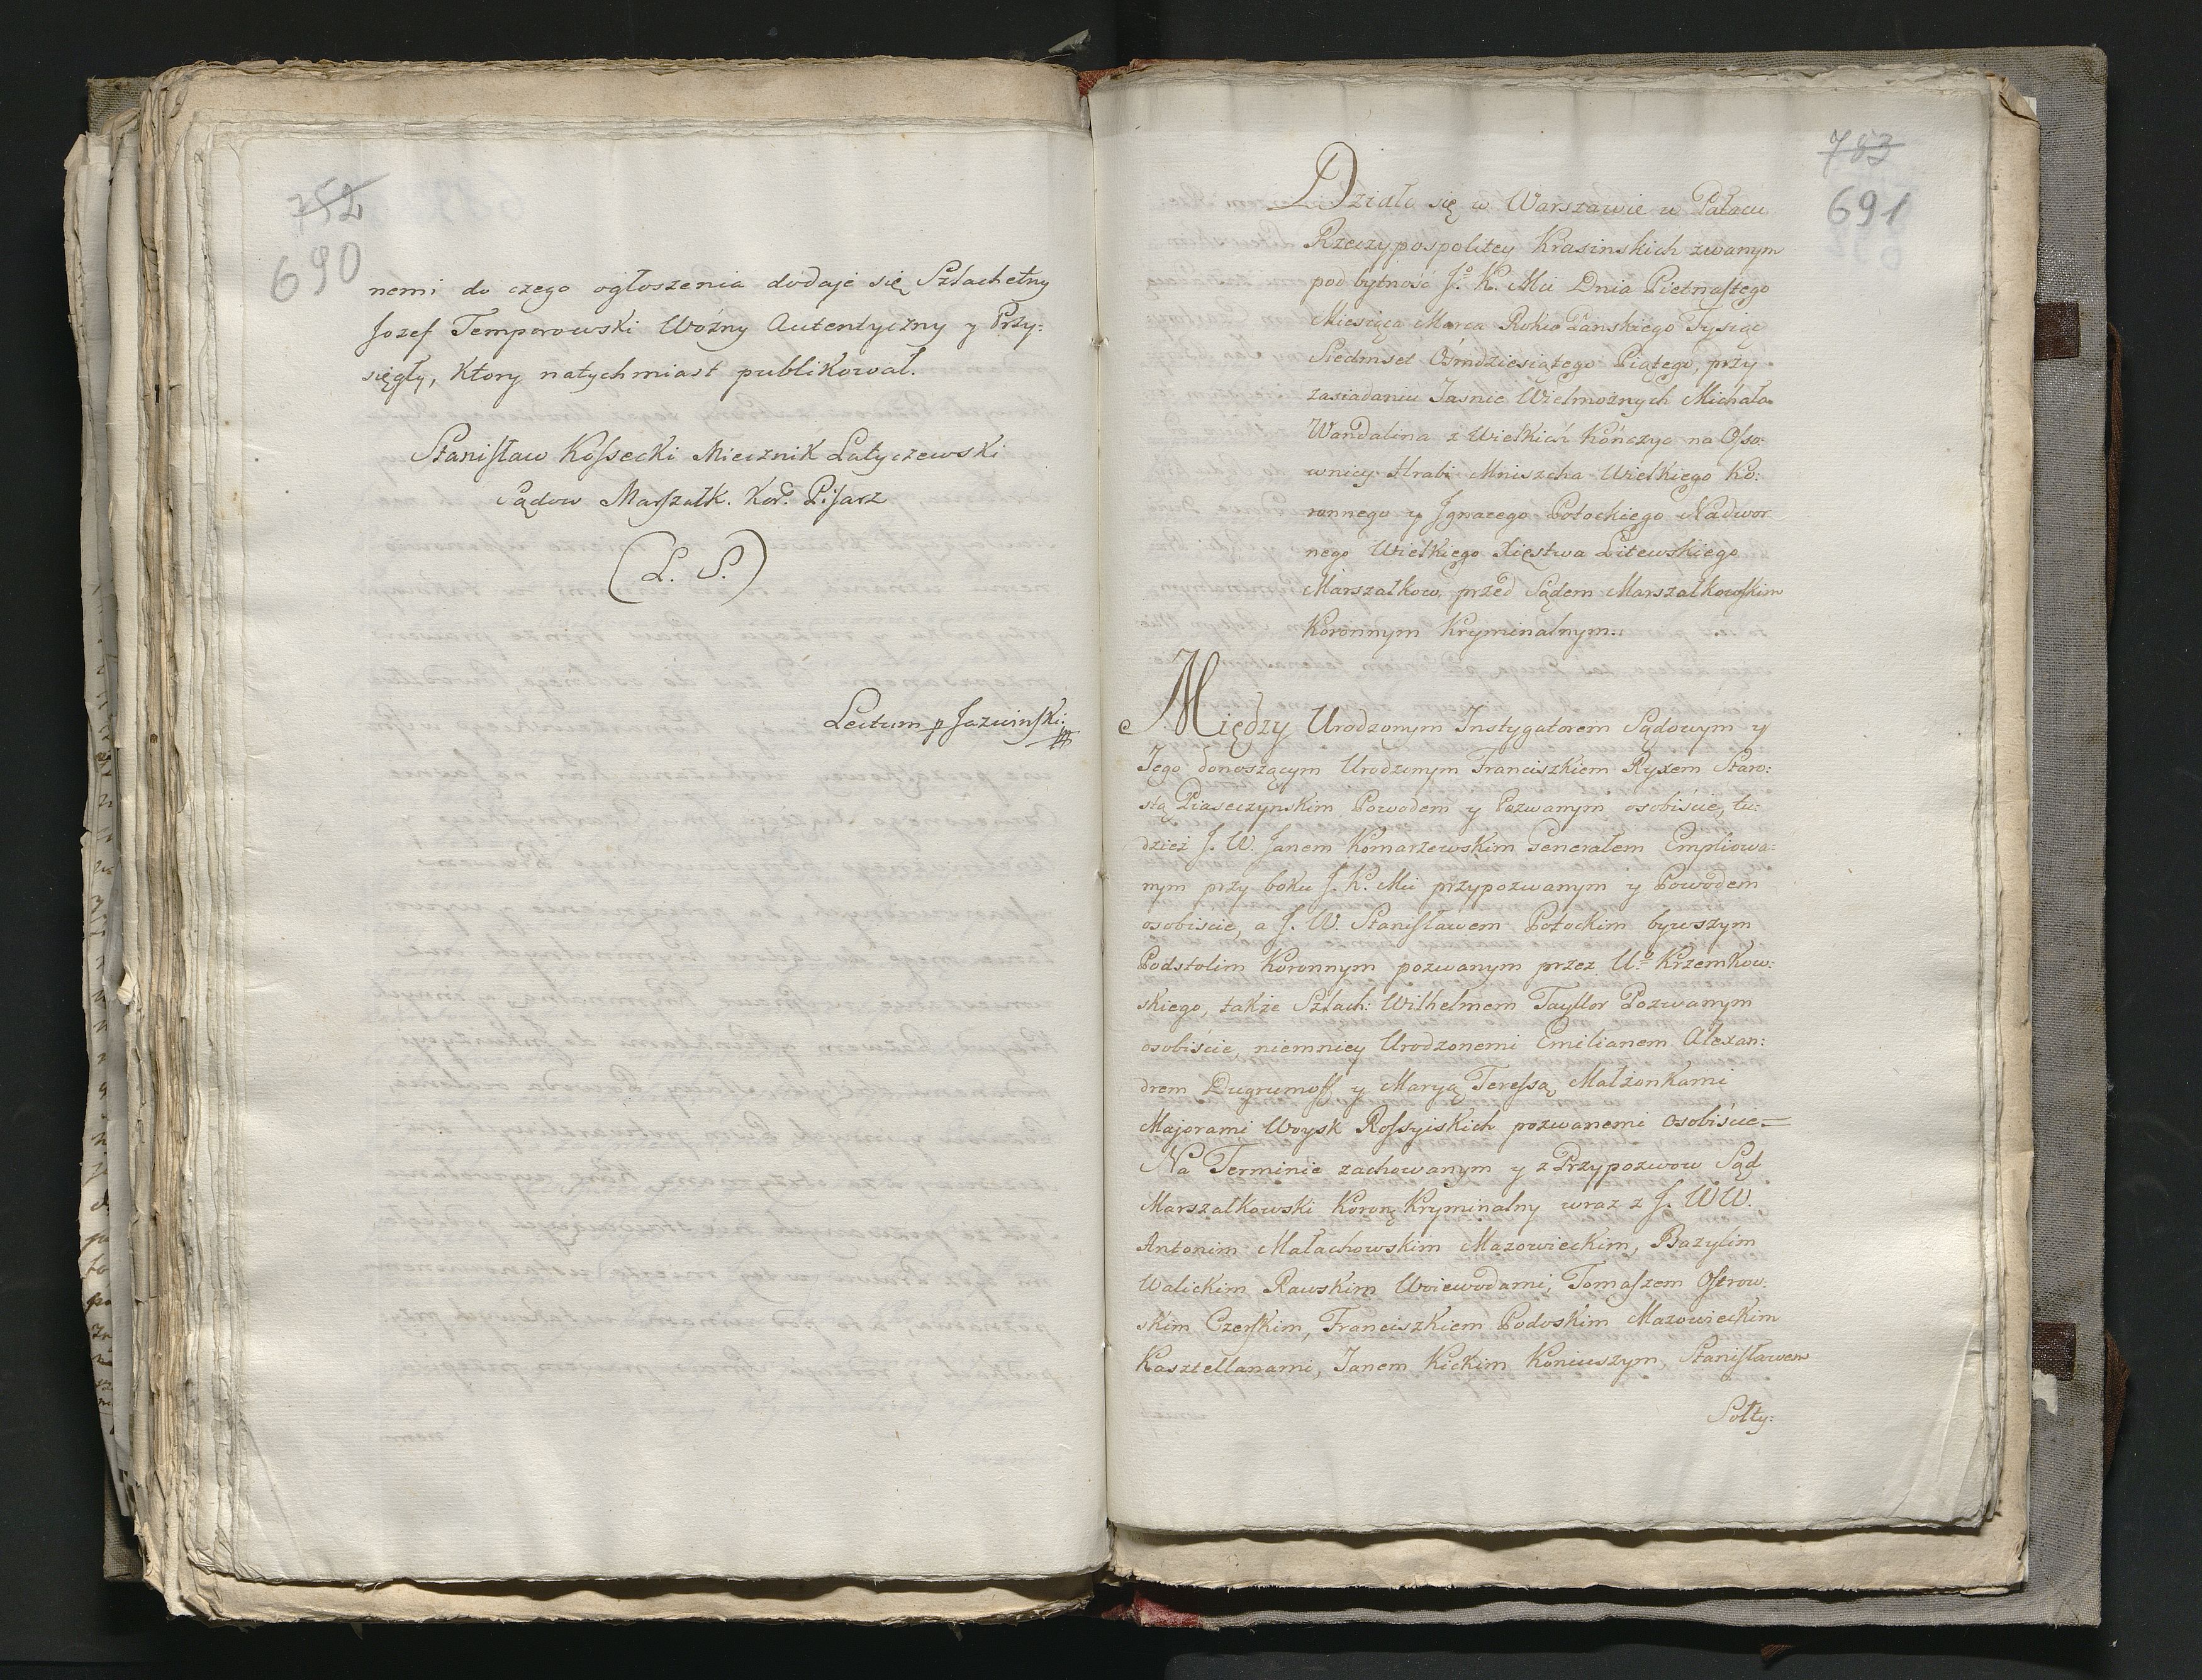 752
690
nemi do czego ogłoszenia dodaje się Szlachetny
Jozef Temperowski Woźny Autentyczny y Przy:
sięgły, Ktory natychmiast publikował.
Stanisław Kossecki Miecznik Latyczewski
Sądow Marszałk. Kor. Pisarz
(L. S.)
Lectum p Jazwinski
753
691
Działo się w Warszawie w Pałacu
Rzeczypospolitey Krasinskich zwanym
pod bytność J. K. Mci Dnia Pietnastego
Miesiąca Marca Roku Panskiego Tysiąc
Siedmset Ośmdziesiątego Piątego, przy
zasiadaniu Jasnie Wielmożnych Michała
Wandalina z Wielkich Kończyc na Osso:
wnicy Hrabi Mniszcha Wielkiego Ko:
ronnego y Jgnacego Potockiego Nadwor
nego Wielkiego Xięstwa Litewskiego
Marszałkow, przed Sądem Marszałkowskim
Koronnym Kryminalnym.
Między Urodzonym Instygatorem Sądowym y
Jego donoszącym Urodzonym Franciszkiem Ryxem Staro:
stą Piaseczynskim Powodem y Pozwanym osobiście, tu:
dzież J. W. Janem Komarzewskim Generałem Empliowa:
nym przy boku J. K. Mci przypozwanym y Powodem
osobiscie, a J. W. Stanisławem Potockim bywszym
Podstolim Koronnym pozwanym przez U.o Krzemkow:
skiego, także Szlach: Wilhelmem Tayllor Pozwanym
osobiście, niemniey Urodzonemi Emilianem Alexan:
drem Dugrumoff y Maryą Teressą Małżonkami
Majorami Woysk Rossyiskich pozwanemi osobiście=
Na Terminie zachowanym y z Przypozwow Sąd
Marszałkowski Koron: Kryminalny wraz z J. WW.
Antonim Małachowskim Mazowieckim, Bazylim
Walickim Rawskim Woiewodami, Tomaszem Ostrow:
skim Czerskim, Franciszkiem Podoskim Mazowieckim
Kasztellanami, Janem Kickim Koniuszym, Stanisławem
Sołty: